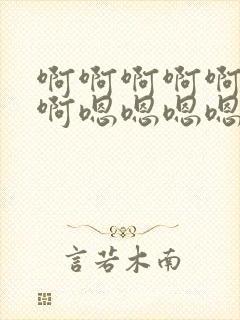 啊啊啊啊啊
啊嗯嗯嗯嗯
言若木南